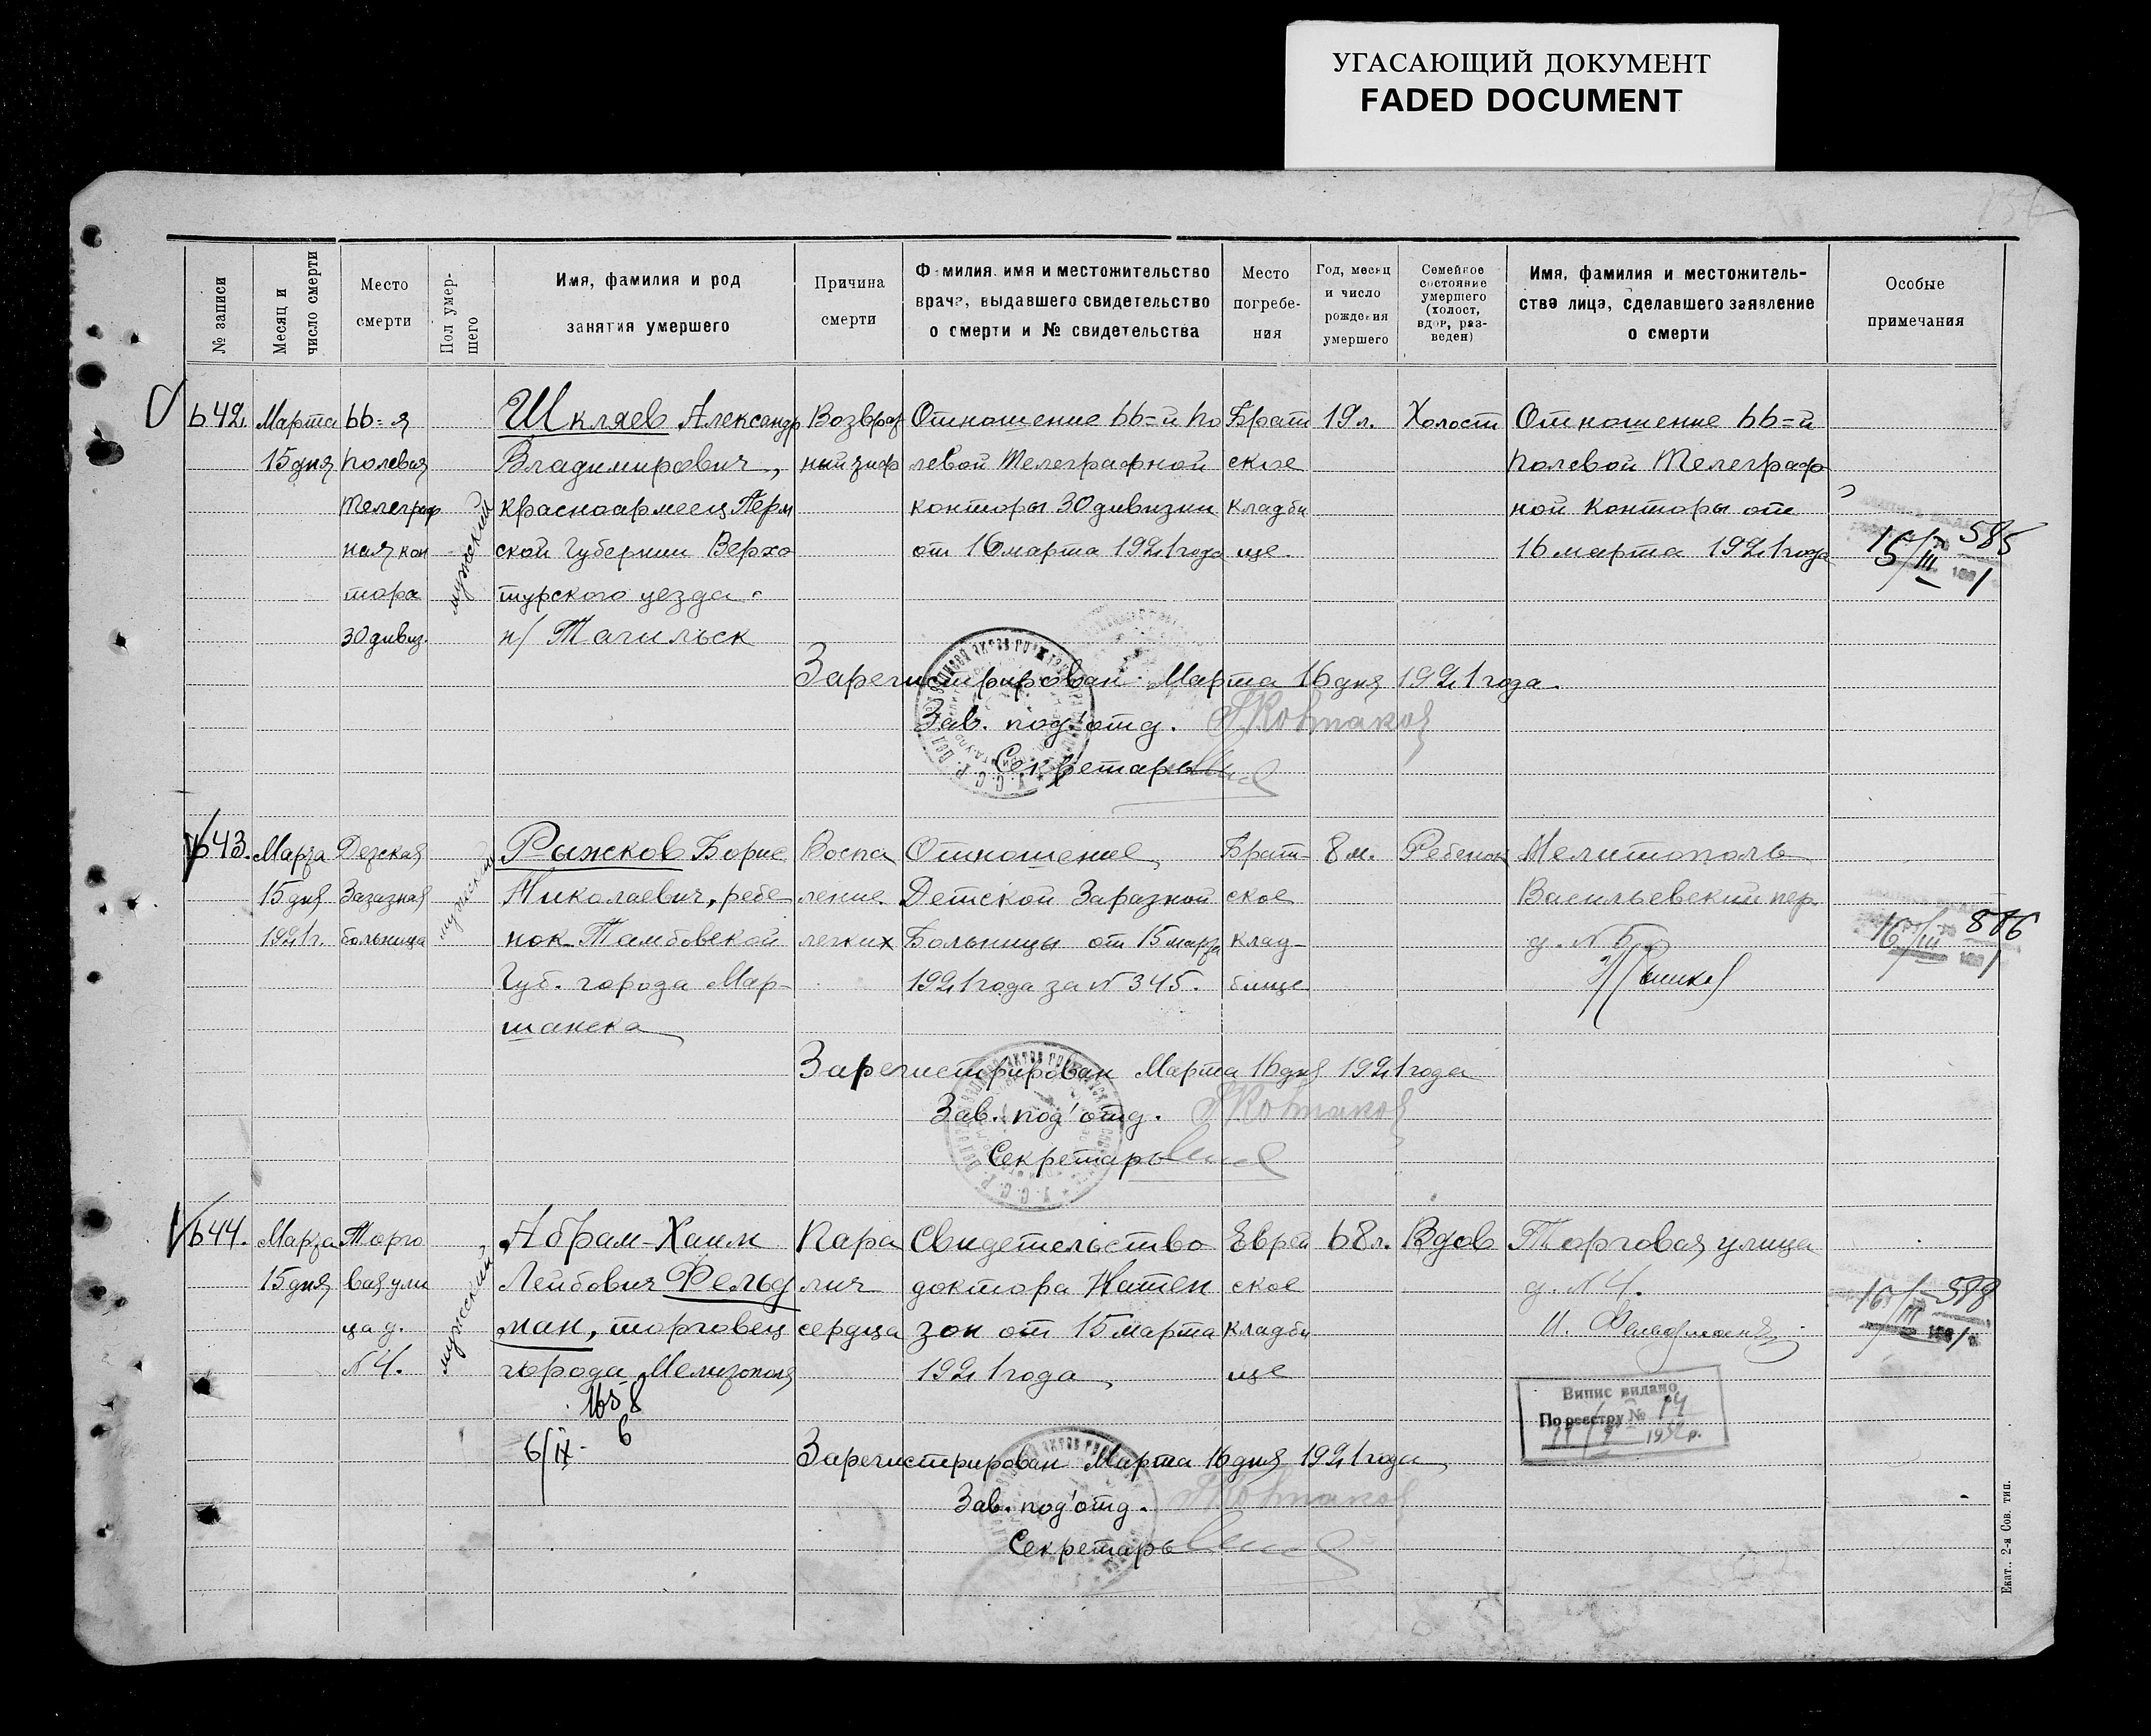 УГАСАЮЩИЙ ДОКУМЕНТ
FADED DOCUMENT
№ записи
Месяц и число смерти
Место смерти
Пол умер-
шего
Имя, фамилия и род
занятия умершего
Причина
смерти
Фамилия, имя и местожительство
врача, выдавшего свидетельство
о смерти и № свидетельства
Место
погребе-
ния
Год, месяц
и число
рождения
умершего
Семейное
состояние
умершего
(холост,
вдов, раз-
веден)
Имя, фамилия и местожитель-
ства лица, сделавшего заявление
о смерти
Особые
примечания
642.
Марта
15 дня
66=я
полевая
телеграф
ная кон
тора
30 дивиз.
мужский
Шкляев Александр
Владимирович,
красноармеец Перм
ской Губернии Верхо
турского уезда
н/ Тагильск
Возврат
ный тиф
Отношение 66=й по
левой Телеграфной
конторы 30 дивизии
от 16 марта 1921 года
Брат
ское
кладби
ще.
19 л.
Холост
Отношение 66=й
полевой Телеграф
ной конторы от
16 марта 1921 года
585
Зарегистрирован Марта 16 дня 1921 года.
Зав. под'отд.
Секретарь
643.
Марта
15 дня
1921 г.
Детская
Заразная
больница
мужский
Рыжков Борис
Николаевич, ребе
нок Тамбовской
Губ. города Мор-
шанска
Воспа
ление
легких
Отношение
Детской Заразной
Больницы от 15 марта
1921 года за № 345.
Брат-
ское
клад-
бище
8 м.
Ребенок
Мелитополь
Васильевский пер.
д. №
16/III
Зарегистрирован Марта 16 дня 1921 года
Зав. под'отд.
Секретарь
644.
Марта
15 дня
Торго
вая ули
ца д.
№ 4.
мужский
Абрам-Хаим
Лейбович Фельд
ман, торговец
города Мелитополя
6/IX
Пара
лич
сердца
Свидетельство
доктора Натен
зон от 15 марта
1921 года
Еврей
ское
кладби
ще
68 л.
Вдов
Торговая улица
д. № 4.
И. Фельдман
16/III
Випис видано
По реєстру № 14
Зарегистрирован Марта 16 дня 1921 года
Зав. под'отд.
Секретарь
Екат. 2-я Сов. тип.